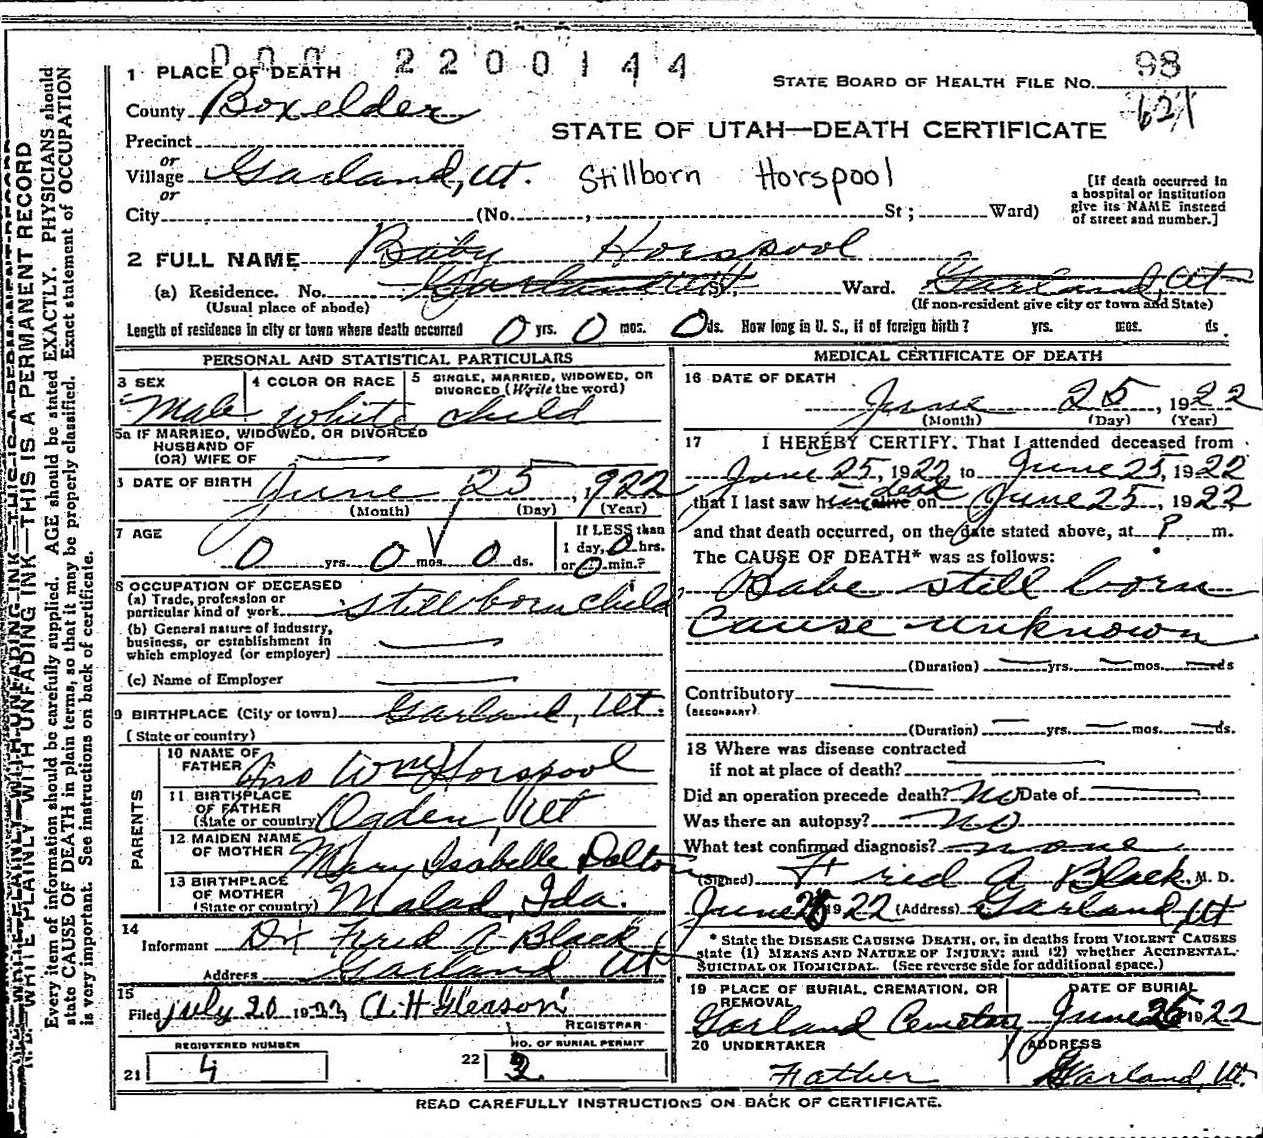 000 2200144
98
621
1 PLACE OF DEATH
STATE BOARD OF HEALTH FILE NO.
County Boxelder
STATE OF UTAH—DEATH CERTIFICATE
Precinct
or
Village Garland, Ut. Stillborn Horspool
or
City (No. , St; Ward)
[If death occurred in a hospital or institution give its NAME instead of street and number.]
2 FULL NAME Baby Horspool
(a) Residence. No. Garland Ut St, Ward. Garland, Ut
(Usual place of abode) (If non-resident give city or town and State)
Length of residence in city or town where death occurred 0 yrs. 0 mos. 0 ds. How long in U. S., if of foreign birth? yrs. mos. ds.
PERSONAL AND STATISTICAL PARTICULARS
3 SEX 4 COLOR OR RACE 5 SINGLE, MARRIED, WIDOWED, OR DIVORCED (Write the word)
Male white child
5a IF MARRIED, WIDOWED, OR DIVORCED
HUSBAND OF
(OR) WIFE OF
DATE OF BIRTH June 25, 1922
(Month) (Day) (Year)
7 AGE If LESS than
1 day, 0 hrs.
0 yrs. 0 mos. 0 ds. or 0 min.?
8 OCCUPATION OF DECEASED
(a) Trade, profession or
particular kind of work. stillborn child
(b) General nature of industry,
business, or establishment in
which employed (or employer)
(c) Name of Employer
9 BIRTHPLACE (City or town) Garland, Ut.
(State or country)
PARENTS
10 NAME OF
FATHER Jno Wm Horspool
11 BIRTHPLACE
OF FATHER
(State or country) Ogden, Ut
12 MAIDEN NAME
OF MOTHER Mary Isabelle Dalton
13 BIRTHPLACE
OF MOTHER
(State or country) Malad, Ida.
14
Informant Dr Fred A Black
Address Garland Ut
15
Filed July 20 1922 A. H Gleason
REGISTRAR
REGISTERED NUMBER
21 4
NO. OF BURIAL PERMIT
22 3
MEDICAL CERTIFICATE OF DEATH
16 DATE OF DEATH
June 25, 1922
(Month) (Day) (Year)
17 I HEREBY CERTIFY, That I attended deceased from
June 25, 1922 to June 25, 1922
that I last saw him alive dead on June 25, 1922
and that death occurred, on the date stated above, at P m.
The CAUSE OF DEATH* was as follows:
Babe still born
Cause unknown
(Duration) yrs. mos. ds
Contributory
(SECONDARY)
(Duration) yrs. mos. ds.
18 Where was disease contracted
if not at place of death?
Did an operation precede death? No Date of
Was there an autopsy? No
What test confirmed diagnosis? none
(Signed) Fred A Black, M. D.
June 25 1922 (Address) Garland Ut
* State the DISEASE CAUSING DEATH, or, in deaths from VIOLENT CAUSES
state (1) MEANS AND NATURE OF INJURY; and (2) whether ACCIDENTAL,
SUICIDAL or HOMICIDAL. (See reverse side for additional space.)
19 PLACE OF BURIAL, CREMATION, OR REMOVAL DATE OF BURIAL
Garland Cemetery June 26 1922
20 UNDERTAKER ADDRESS
Father Garland, Ut.
READ CAREFULLY INSTRUCTIONS ON BACK OF CERTIFICATE.
N.B. WRITE PLAINLY WITH UNFADING INK—THIS IS A PERMANENT RECORD
Every item of information should be carefully supplied. AGE should be stated EXACTLY. PHYSICIANS should
state CAUSE OF DEATH in plain terms, so that it may be properly classified. Exact statement of OCCUPATION
is very important. See instructions on back of certificate.